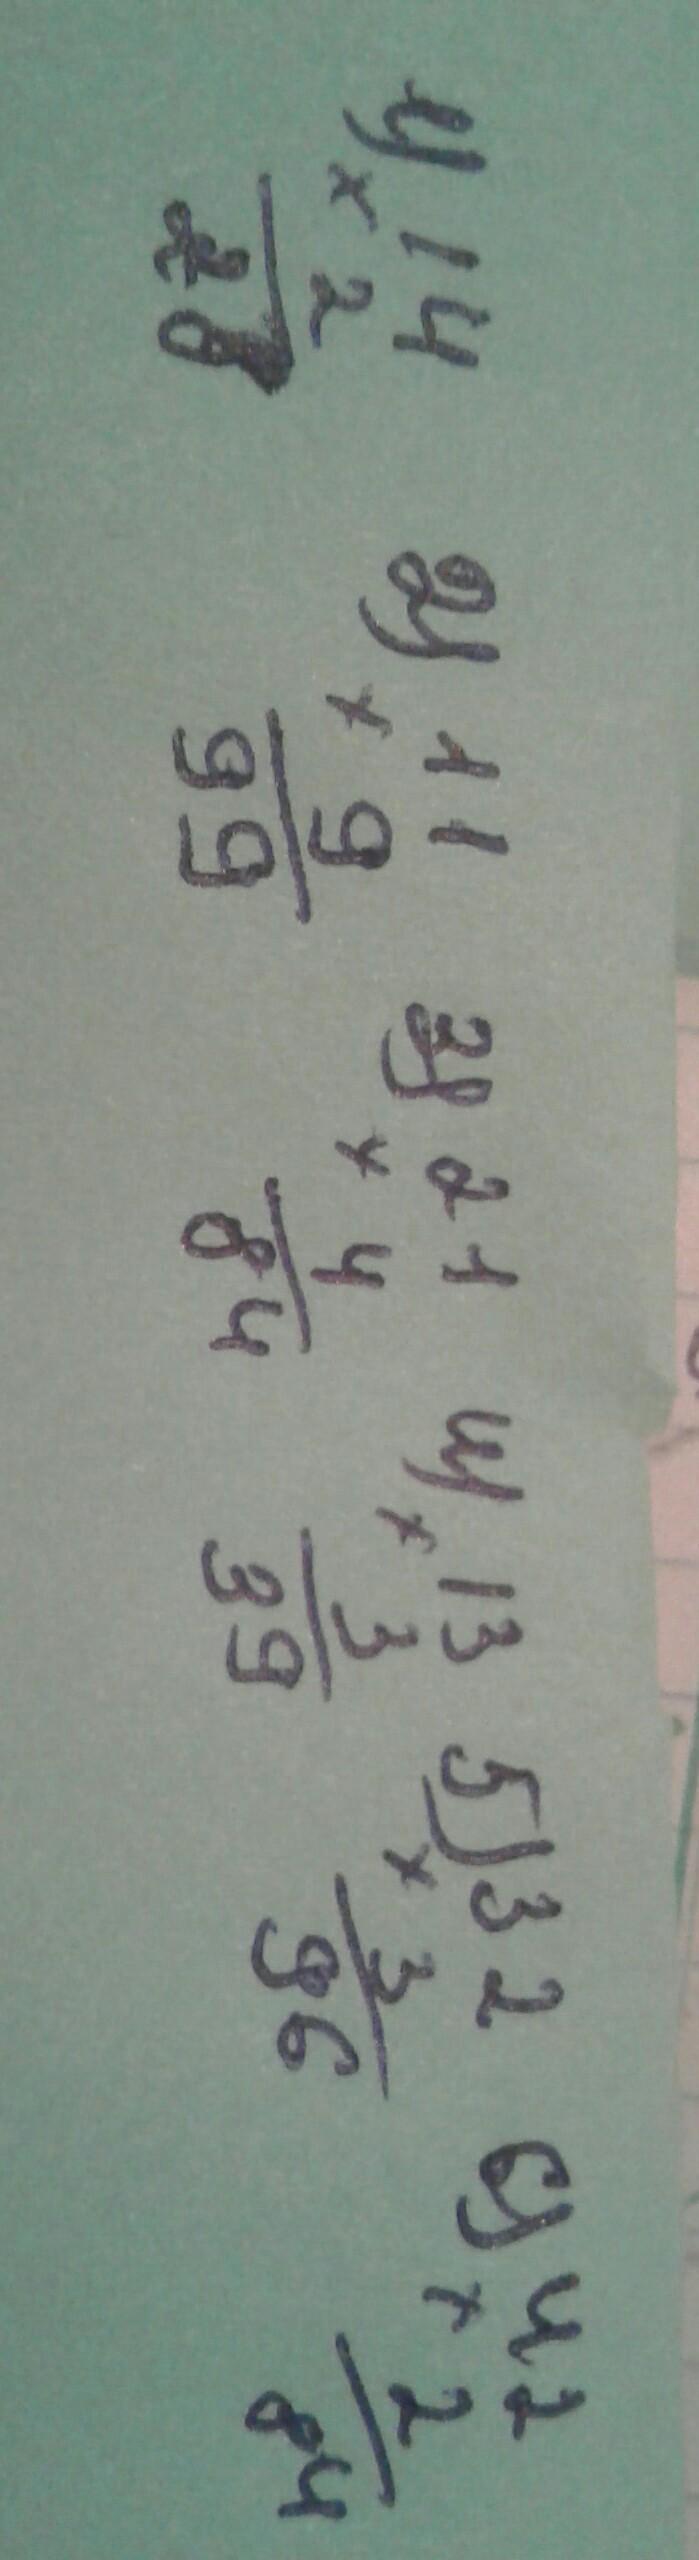 1) 14 2) 11 3) 21 4) 13 5) 32 6) 42
x 2 x 9 x 4 x 3 x 3 x 2
28 99 84 39 96 84